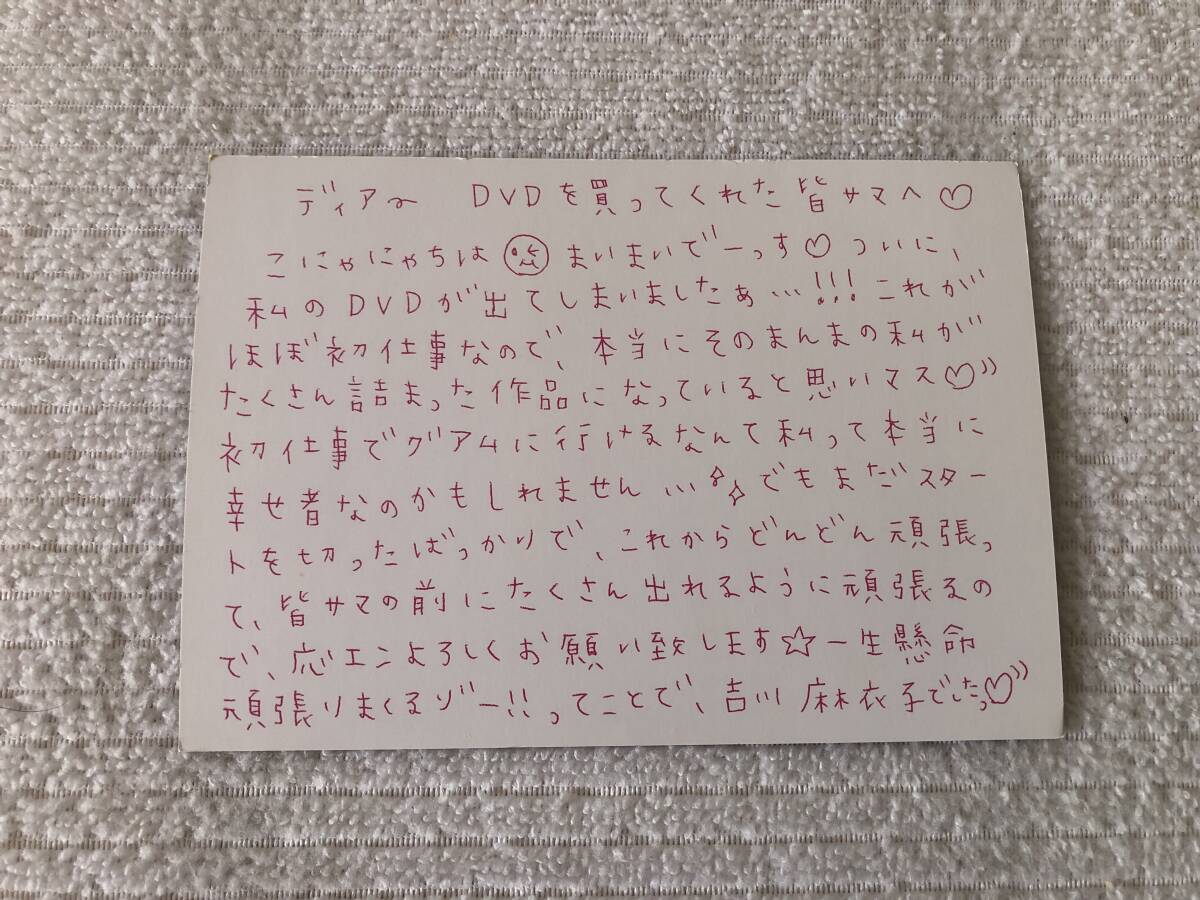 ディア〜 DVDを買ってくれた皆サマへ♡
こにゃにゃちは まいまいでーっす♡ついに、
私のDVDが出てしまいましたぁ…!!!これが
ほぼ初仕事なので、本当にそのまんまの私が
たくさん詰まった作品になっていると思いマス♡
初仕事でグアムに行けるなんて私って本当に
幸せ者なのかもしれません…でもまだスター
トを切ったばっかりで、これからどんどん頑張っ
て、皆サマの前にたくさん出れるように頑張るの
で、応エンよろしくお願い致します☆一生懸命
頑張りまくるゾー!!ってことで、吉川 麻衣子でしたっ♡